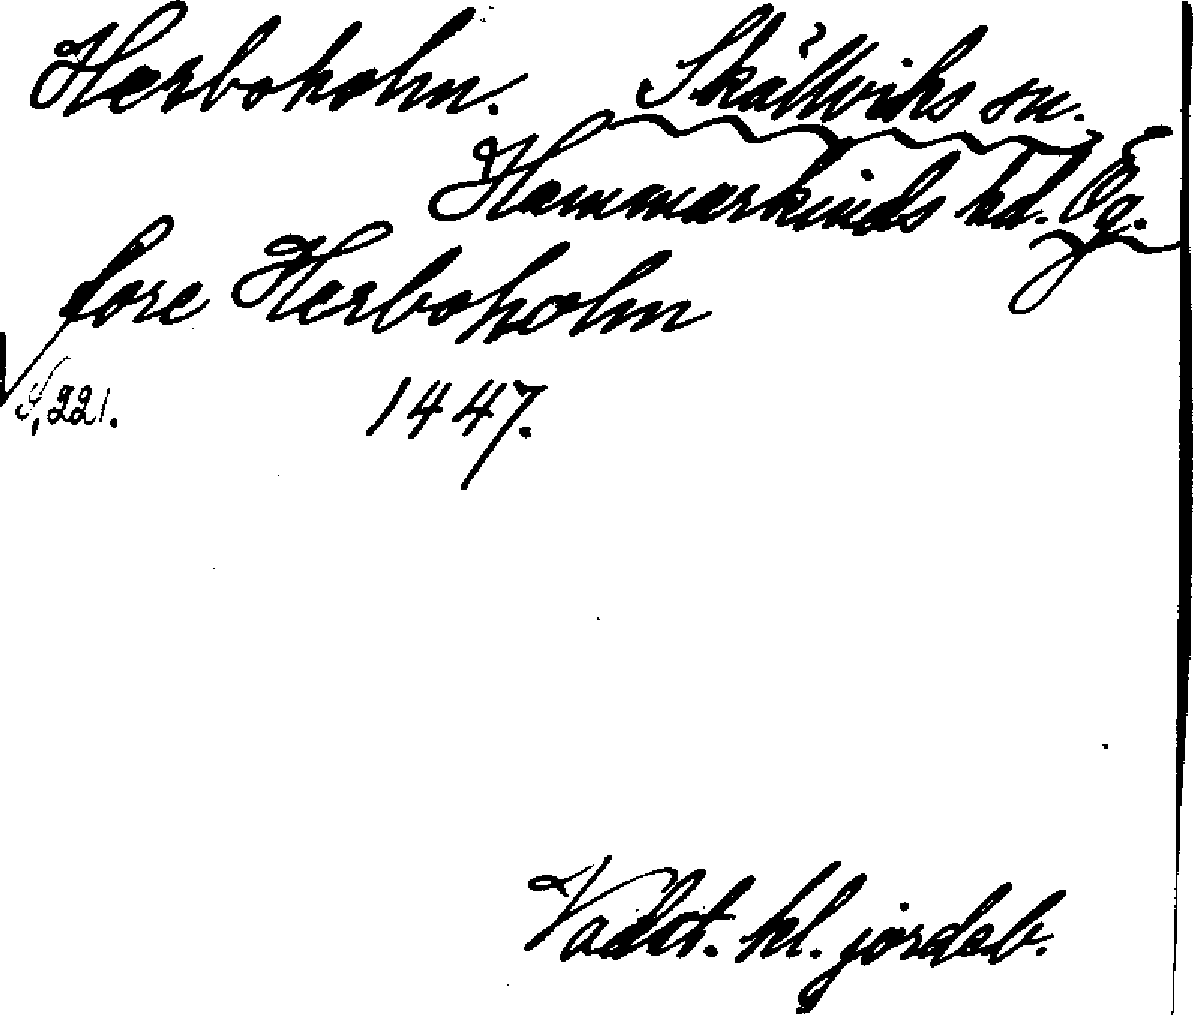 Herboholm. Skällviks sn.
Hammarkinds hd. Ög.
fore Herboholm
S, 221. 1447.
Vadst. kl. jordeb.